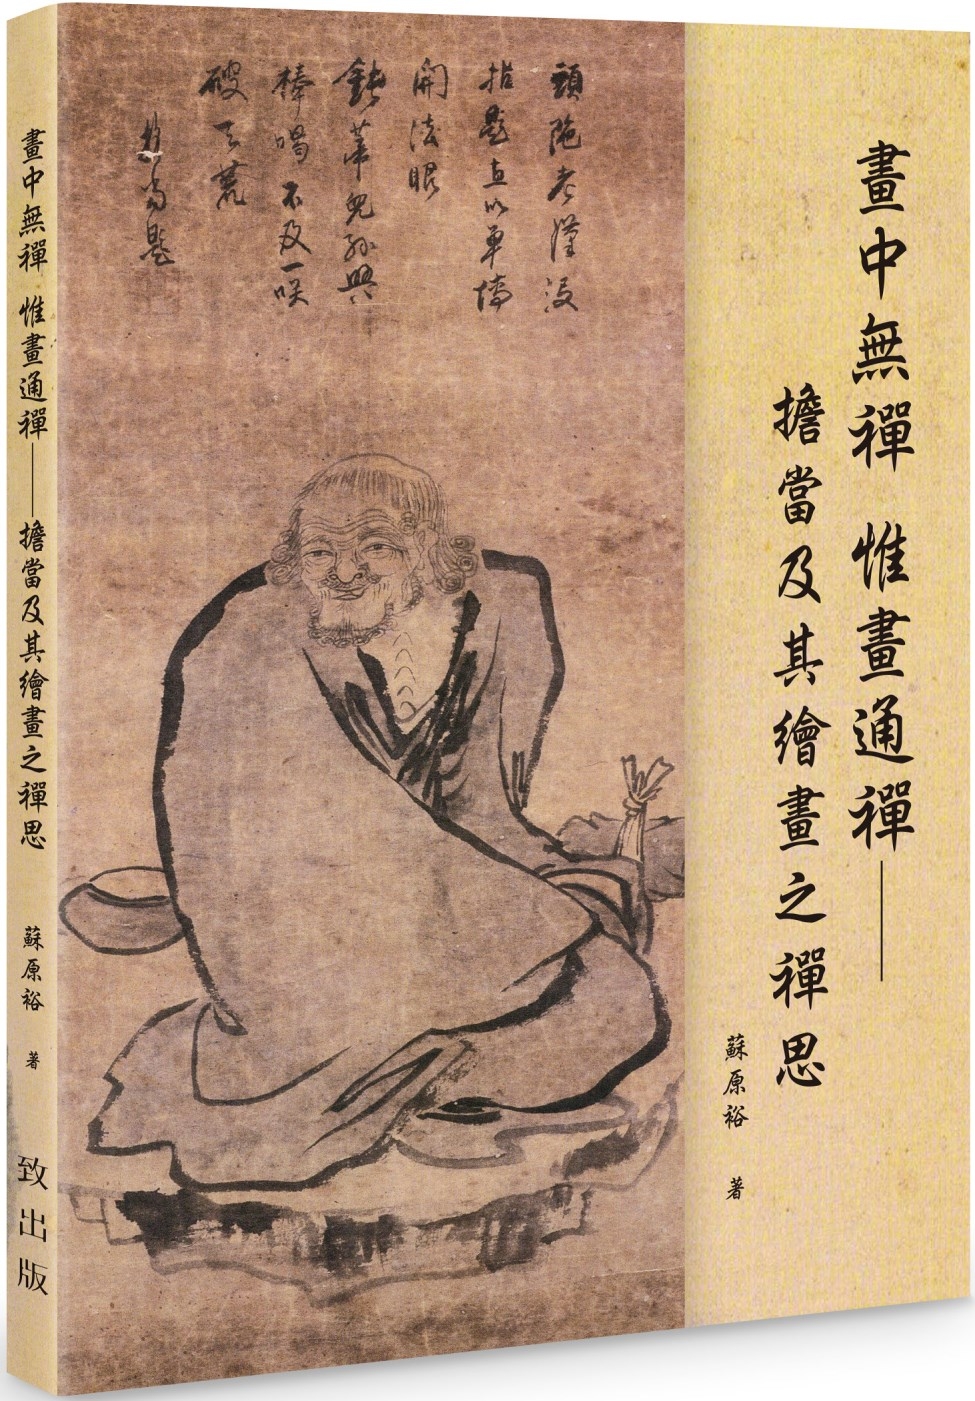 畫中無禪 惟畫通禪——
擔當及其繪畫之禪思
蘇原裕 著
頭陀老漢沒
直以單傳
開法眼
兒孫
棒喝不及一咲
破天荒
擔當題
畫中無禪 惟畫通禪——擔當及其繪畫之禪思 蘇原裕 著 致出版